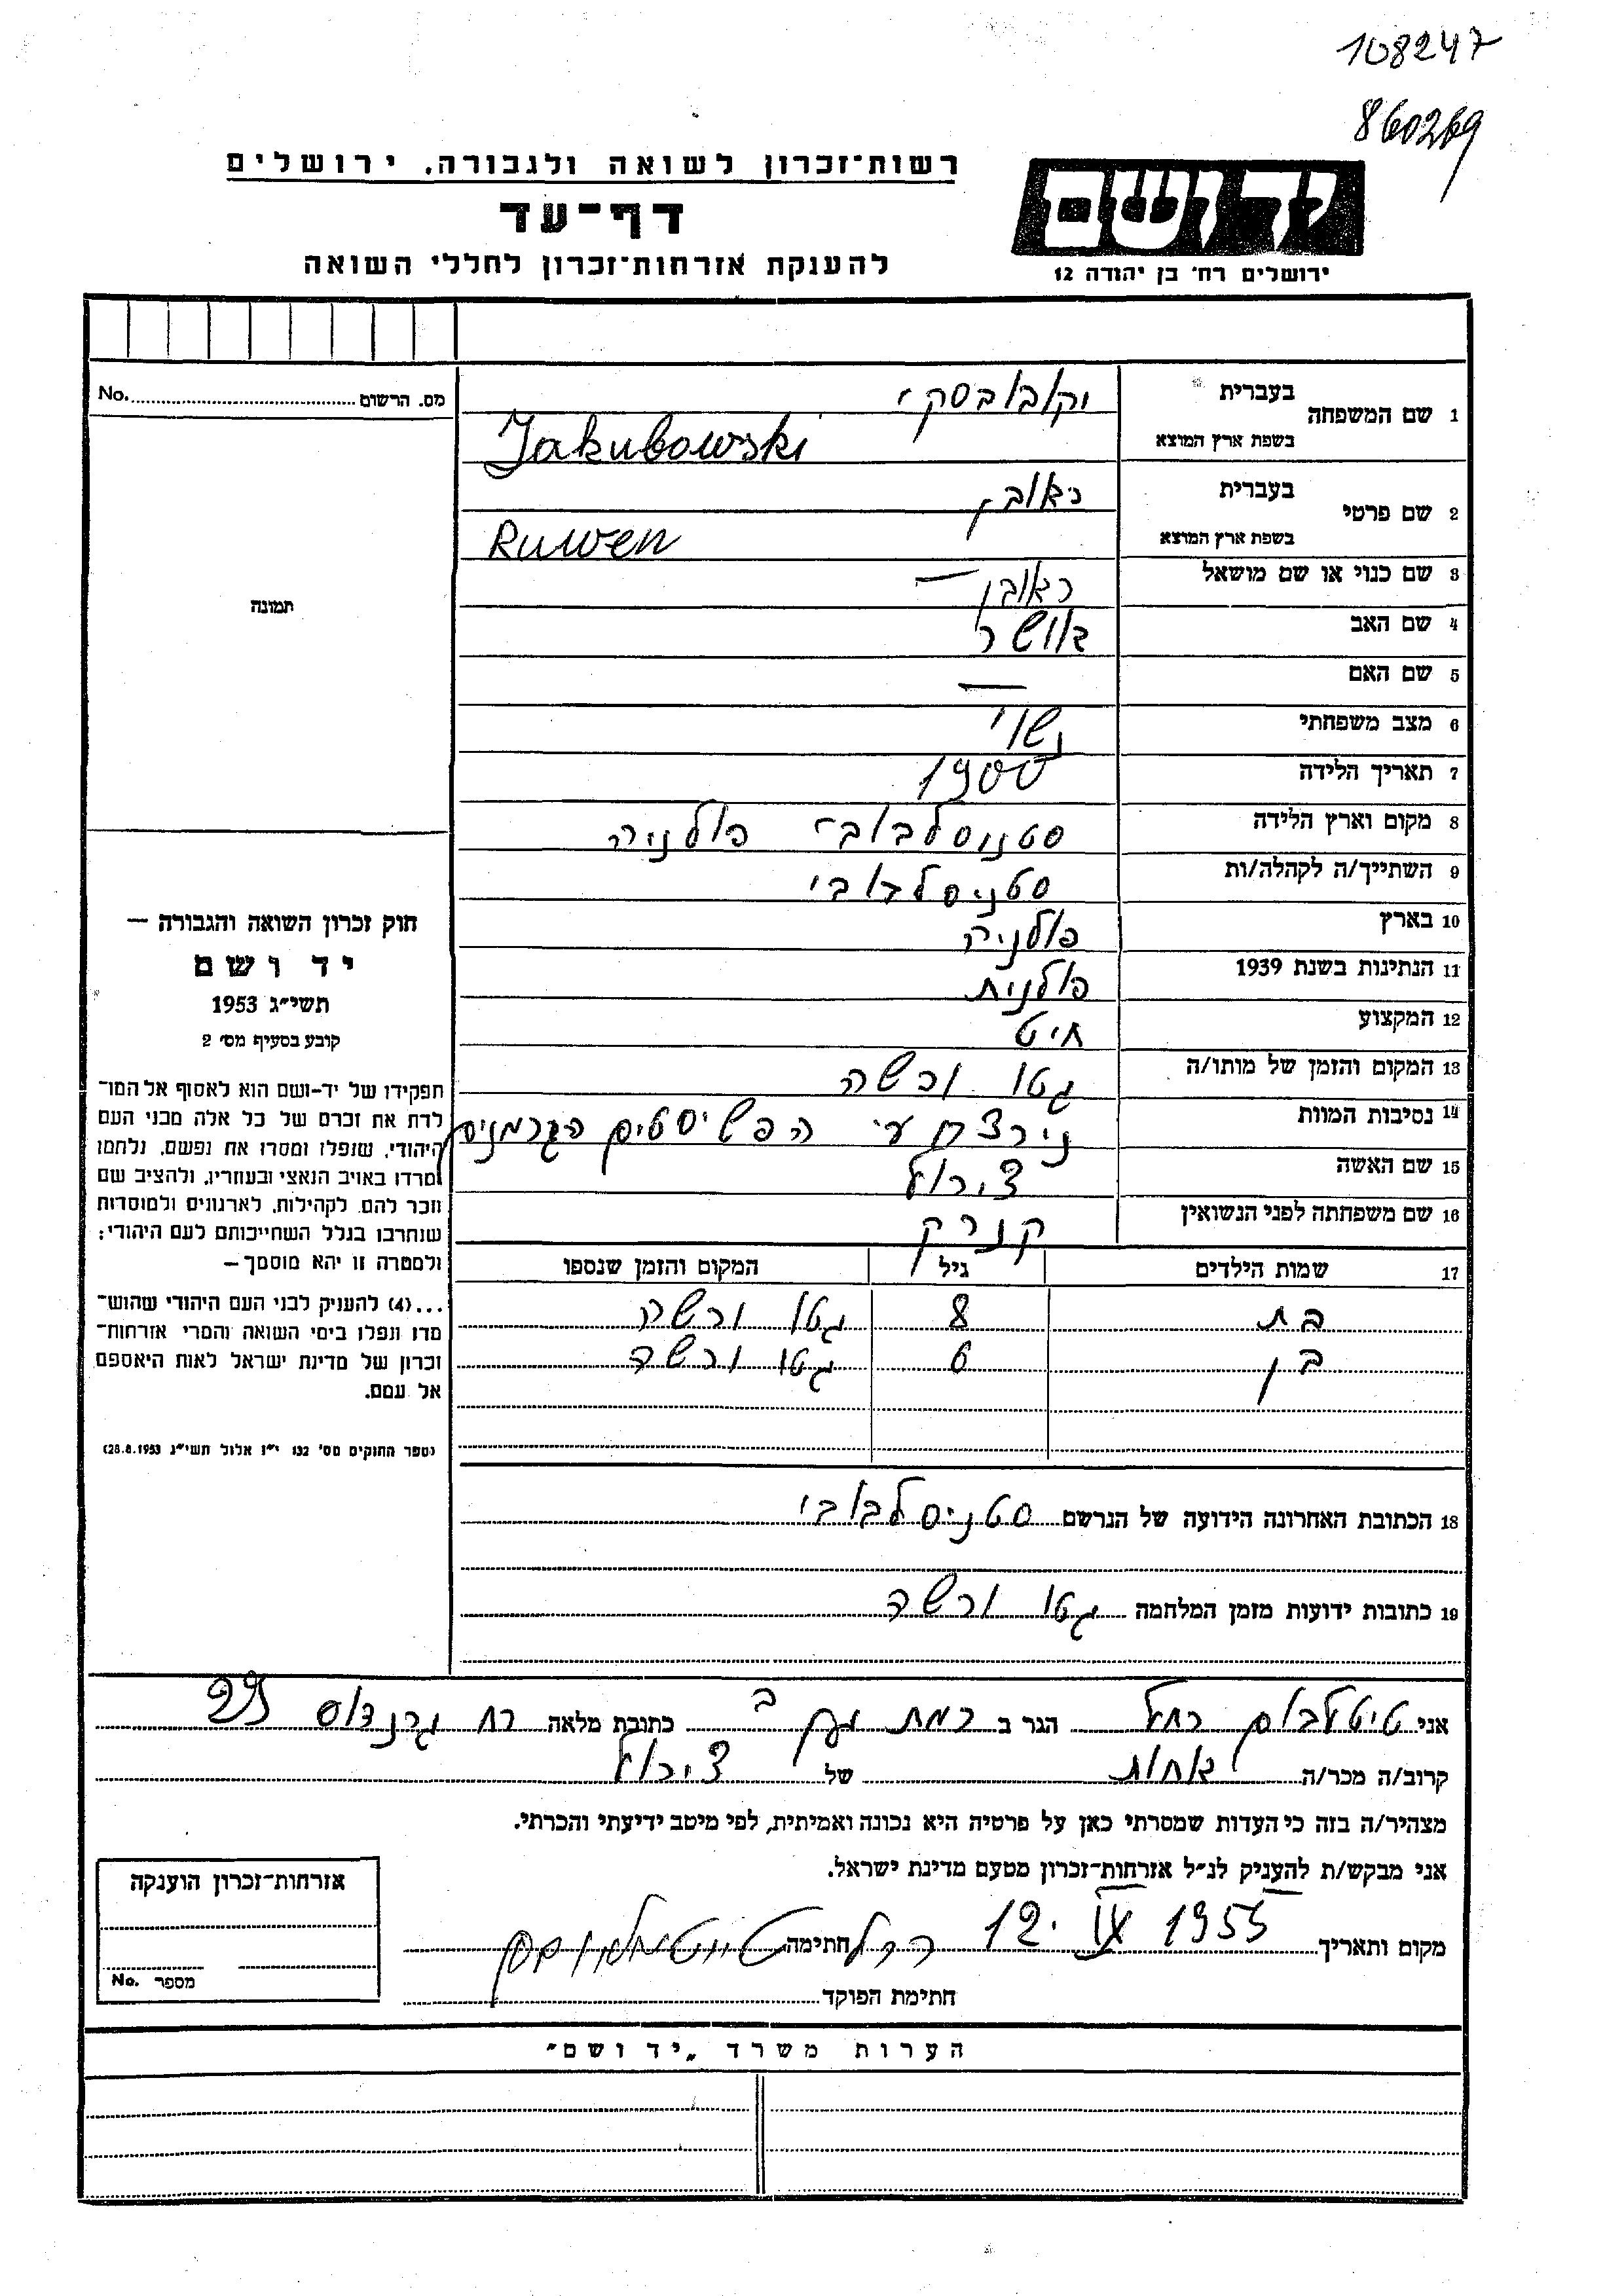 108247
860269
יד ושם
ירושלים רח' בן יהודה 12
רשות־זכרון לשואה ולגבורה, ירושלים
דף־עד
להענקת אזרחות־זכרון לחללי השואה
מס. הרשום No.
תמונה
1 שם המשפחה בעברית יקובובסקי
בשפת ארץ המוצא Jakubowski
2 שם פרטי בעברית ראובן
בשפת ארץ המוצא Ruwen
3 שם כנוי או שם מושאל ראובן —
4 שם האב
5 שם האם —
6 מצב משפחתי נשוי
7 תאריך הלידה 1900
8 מקום וארץ הלידה פולניה
9 השתייך/ה לקהלה/ות
10 בארץ פולניה
11 הנתינות בשנת 1939 פולנית
12 המקצוע חיט
13 המקום והזמן של מותו/ה גטו ורשה
14 נסיבות המוות נירצח ע״י הפשיסטים הגרמנים
15 שם האשה צירול
16 שם משפחתה לפני הנשואין
17 שמות הילדים גיל המקום והזמן שנספו
בת 8 גטו ורשה
בן 6 גטו ורשה
18 הכתובת האחרונה הידועה של הנרשם סטניסלבובי
19 כתובות ידועות מזמן המלחמה גטו ורשה
חוק זכרון השואה והגבורה —
יד ושם
תשי״ג 1953
קובע בסעיף מס׳ 2
תפקידו של יד־ושם הוא לאסוף אל המו־
לדת את זכרם של כל אלה מבני העם
היהודי, שנפלו ומסרו את נפשם, נלחמו
ומרדו באויב הנאצי ובעוזריו, ולהציב שם
וזכר להם, לקהילות, לארגונים ולמוסדות
שנחרבו בגלל השתייכותם לעם היהודי;
ולמטרה זו יהא מוסמך —
...(4) להעניק לבני העם היהודי שהוש־
מדו ונפלו בימי השואה והמרי אזרחות־
זכרון של מדינת ישראל לאות היאספם
אל עמם.
(ספר החוקים מס׳ 132 י״ז אלול תשי״ג 28.8.1953)
אני טיטלבום רחל הגר ב רמת גן ב כתובת מלאה רח 29
קרוב/ה מכר/ה אחות של צירול
מצהיר/ה בזה כי העדות שמסרתי כאן על פרטיה היא נכונה ואמיתית, לפי מיטב ידיעתי והכרתי.
אני מבקש/ת להעניק לנ״ל אזרחות־זכרון מטעם מדינת ישראל.
מקום ותאריך 12. IX 1955 חתימה רחל טייטלבוים
חתימת הפוקד
אזרחות־זכרון הוענקה
מספר No.
הערות משרד „יד ושם״